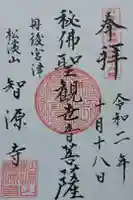 奉拝
令和二年
十月十八日
秘佛聖観世音菩薩
丹後宮津
松溪山
智源寺